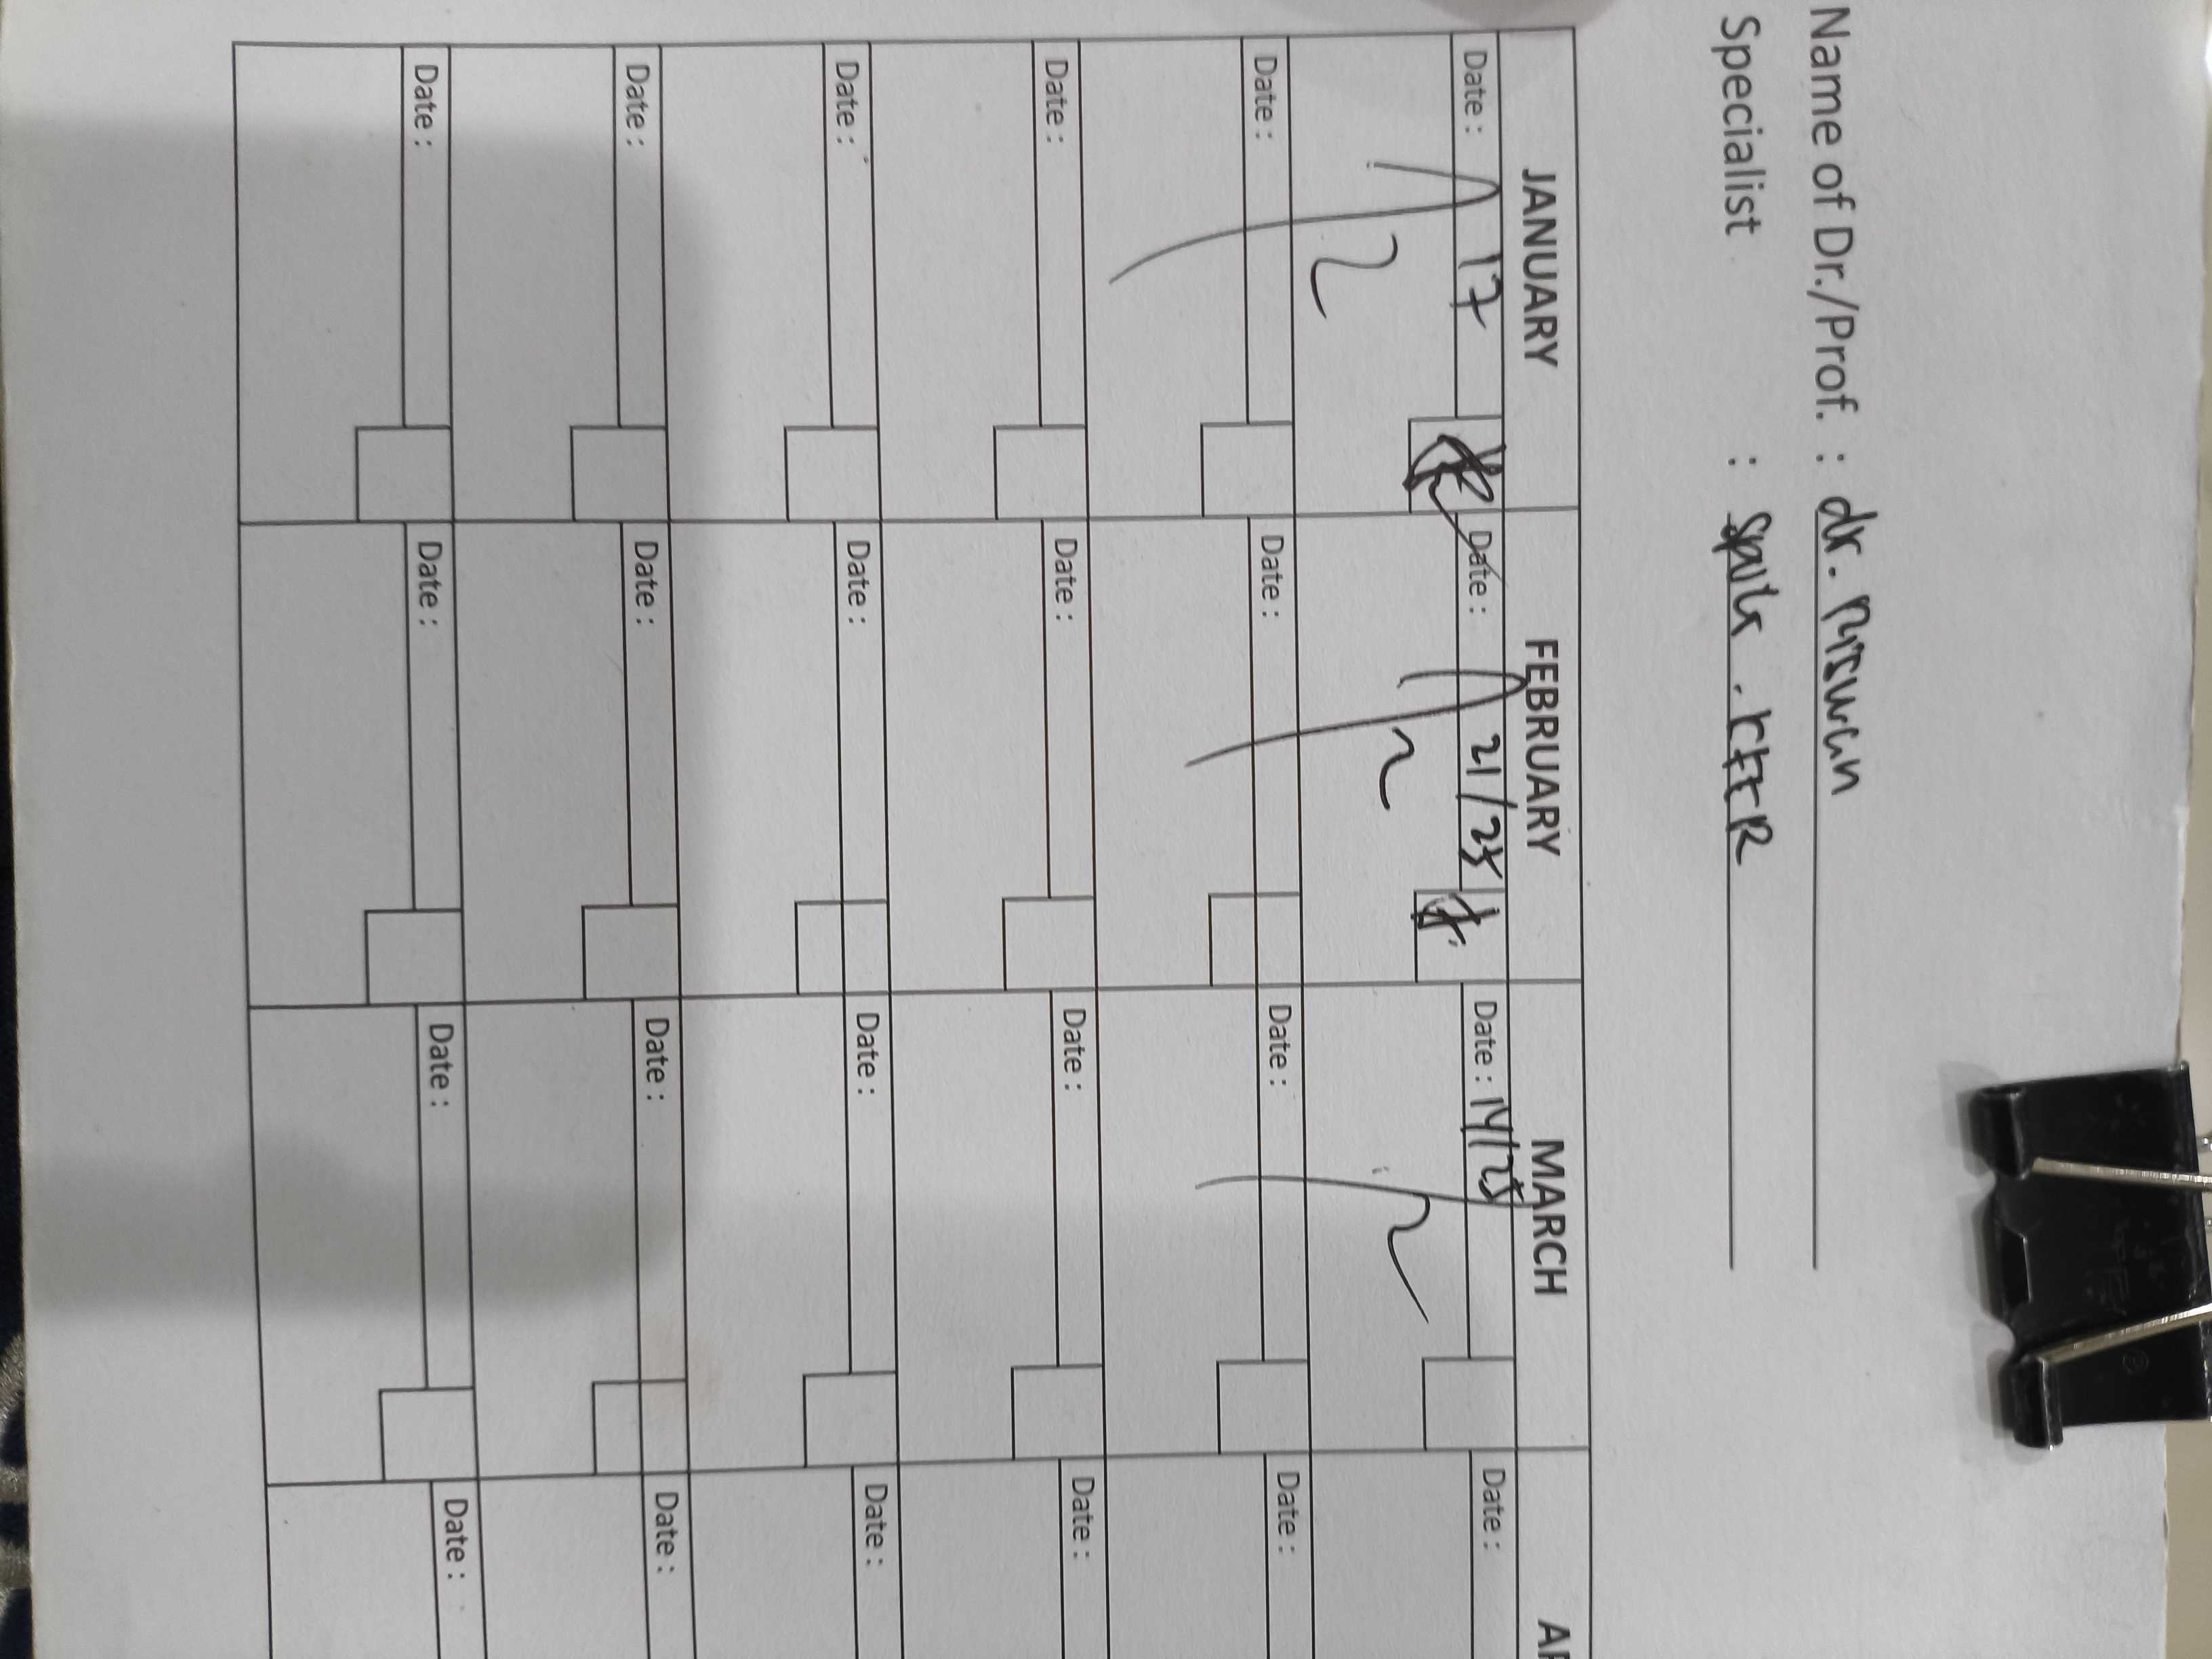 Name of Dr./Prof. : dr.
Specialist :
JANUARY FEBRUARY MARCH
Date : 17 Date : 21/25 Date : 14/25 Date :
Date : Date : Date : Date :
Date : Date : Date : Date :
Date : Date : Date : Date :
Date : Date : Date : Date :
Date : Date : Date : Date :